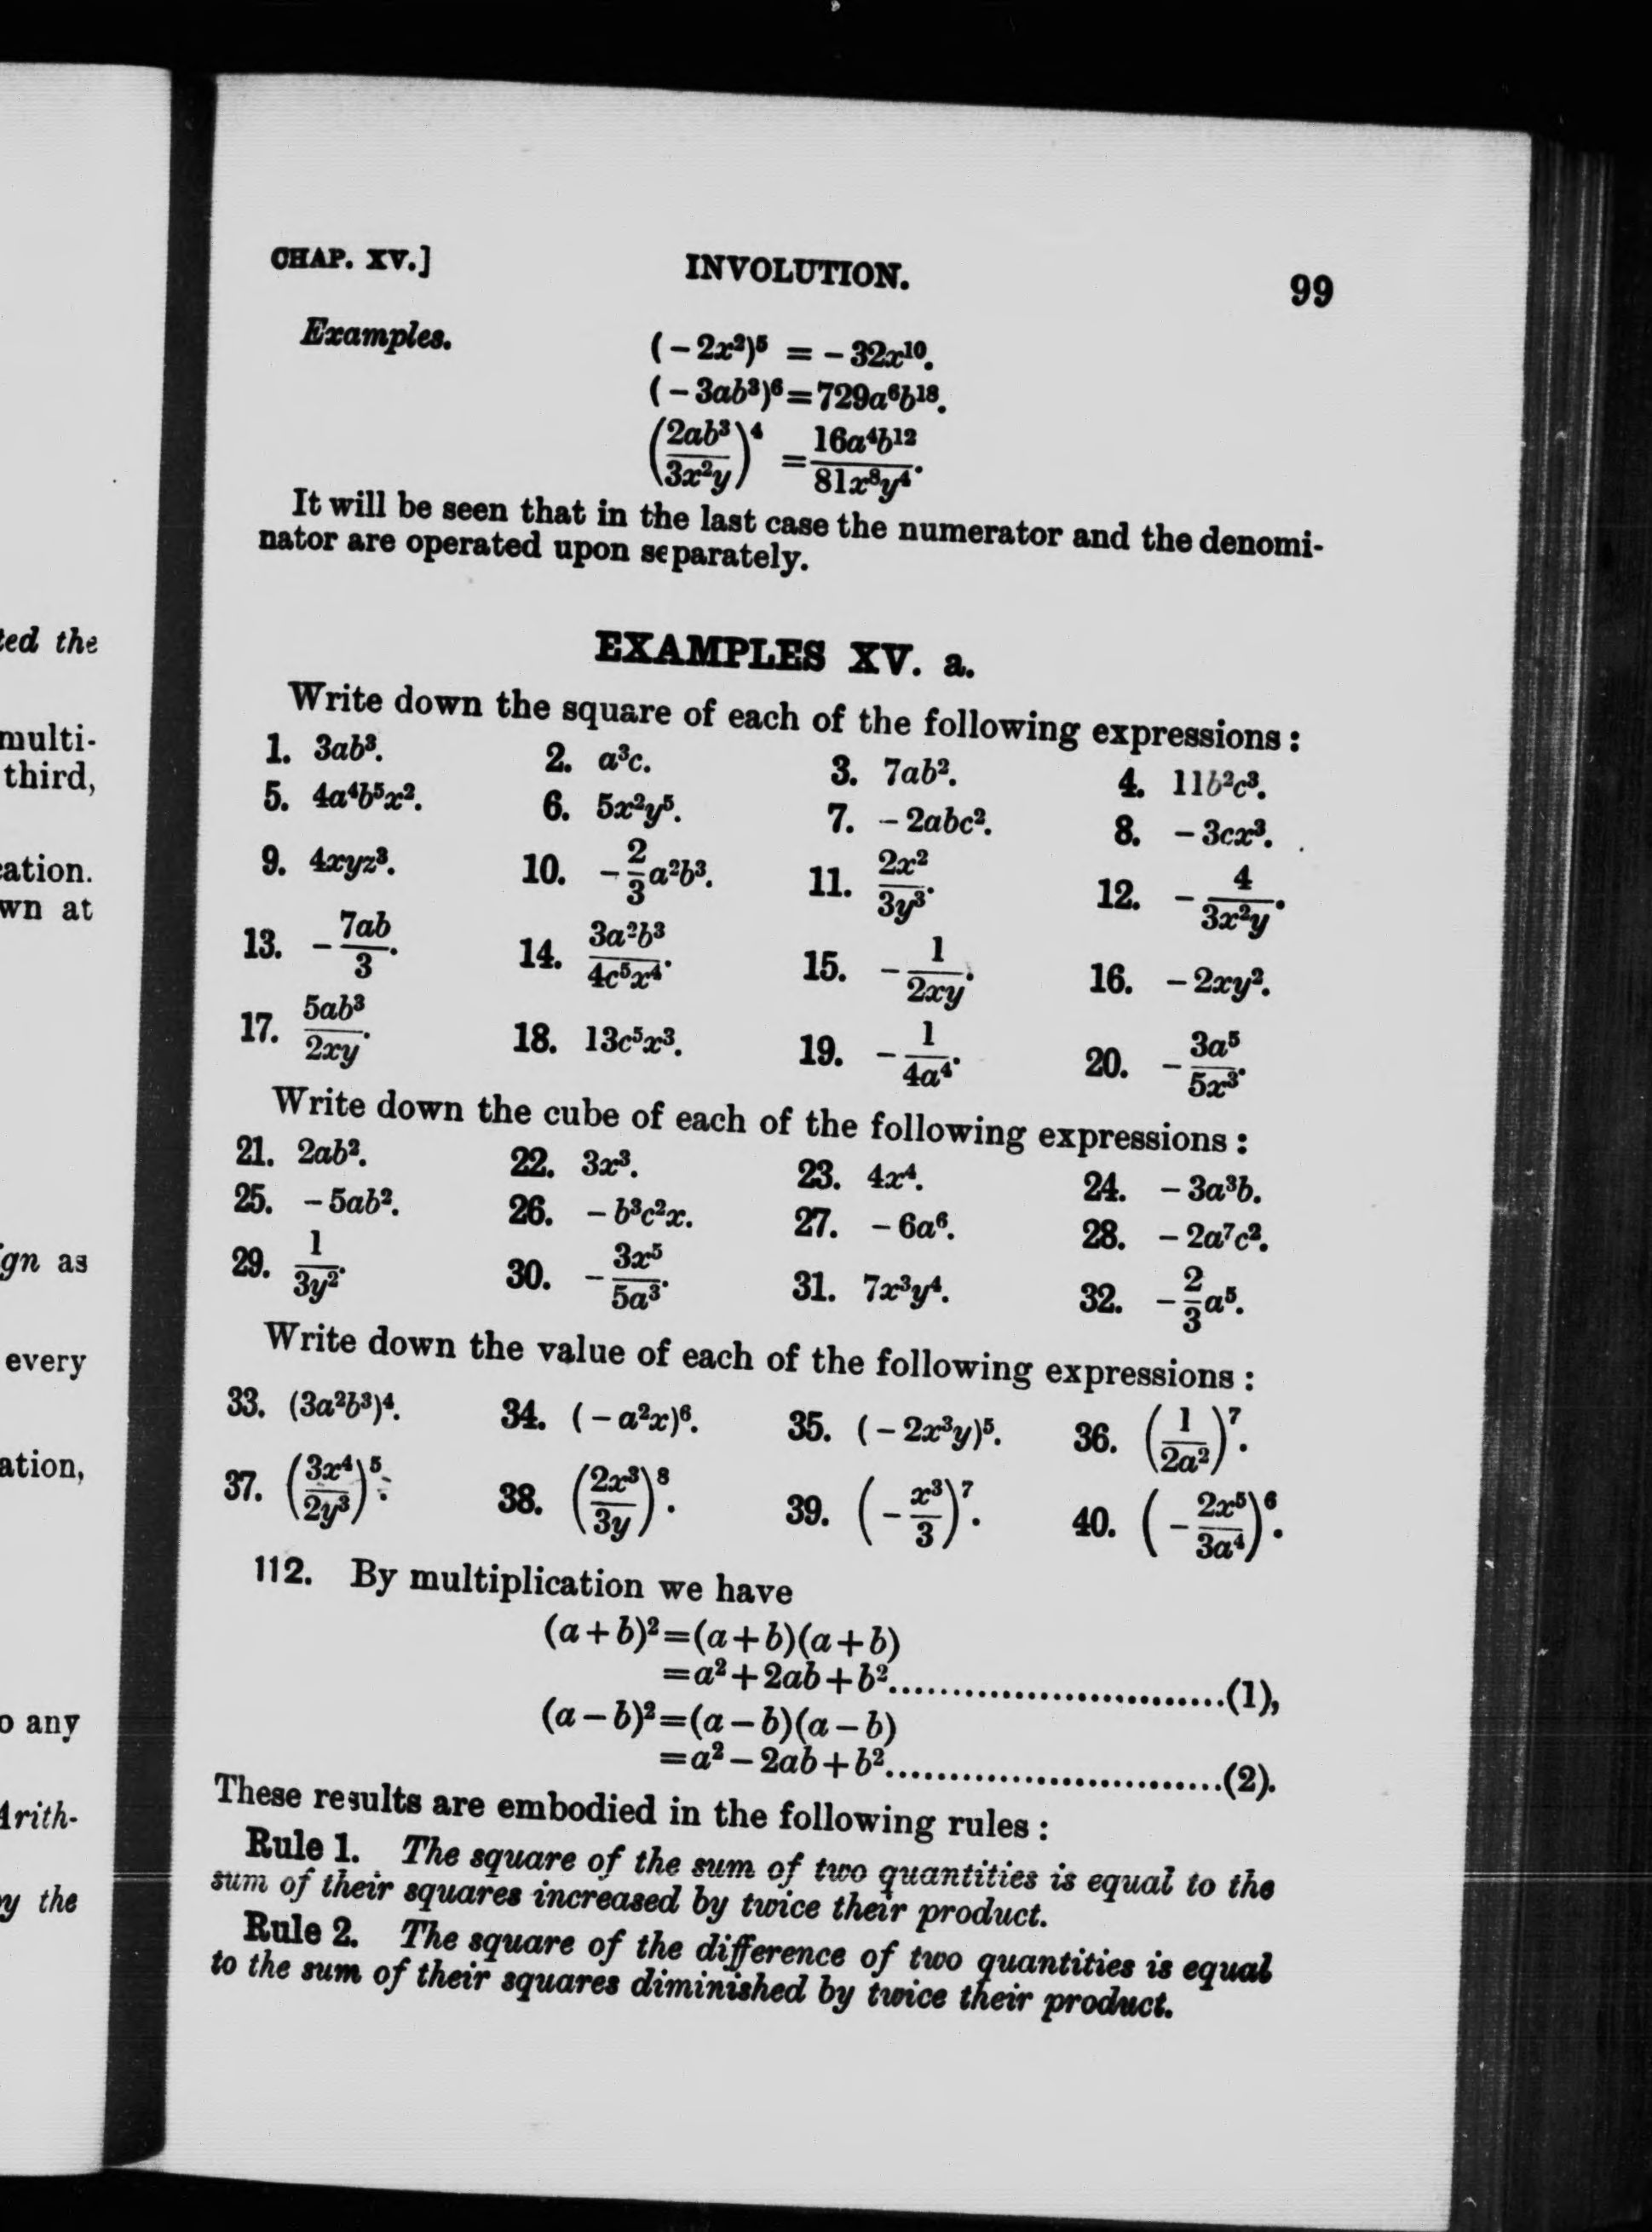 CHAP. XV.] INVOLUTION. 99
Examples. (-2x²)⁵ = -32x¹⁰.
(-3ab³)⁶=729a⁶b¹⁸.
(2ab³/3x²y)⁴ = 16a⁴b¹²/81x⁸y⁴.
It will be seen that in the last case the numerator and the denomi-
nator are operated upon separately.
EXAMPLES XV. a.
Write down the square of each of the following expressions:
1. 3ab³. 2. a³c. 3. 7ab². 4. 11b²c³.
5. 4a⁴b⁵x². 6. 5x²y⁵. 7. -2abc². 8. -3cx³.
9. 4xyz³. 10. -2/3 a²b³. 11. 2x²/3y³. 12. -4/3x²y.
13. -7ab/3. 14. 3a²b³/4c⁵x⁴. 15. -1/2xy. 16. -2xy².
17. 5ab³/2xy. 18. 13c⁵x³. 19. -1/4a⁴. 20. -3a⁵/5x³.
Write down the cube of each of the following expressions:
21. 2ab². 22. 3x³. 23. 4x⁴. 24. -3a³b.
25. -5ab². 26. -b³c²x. 27. -6a⁶. 28. -2a⁷c².
29. 1/3y². 30. -3x⁵/5a³. 31. 7x³y⁴. 32. -2/3 a⁵.
Write down the value of each of the following expressions:
33. (3a²b³)⁴. 34. (-a²x)⁶. 35. (-2x³y)⁵. 36. (1/2a²)⁷.
37. (3x⁴/2y³)⁵. 38. (2x³/3y)⁸. 39. (-x³/3)⁷. 40. (-2x⁵/3a⁴)⁶.
112. By multiplication we have
(a+b)²=(a+b)(a+b)
=a²+2ab+b²..............................(1),
(a-b)²=(a-b)(a-b)
=a²-2ab+b²..............................(2).
These results are embodied in the following rules:
Rule 1. The square of the sum of two quantities is equal to the
sum of their squares increased by twice their product.
Rule 2. The square of the difference of two quantities is equal
to the sum of their squares diminished by twice their product.
the
multi-
third,
wn at
as
every
any
the